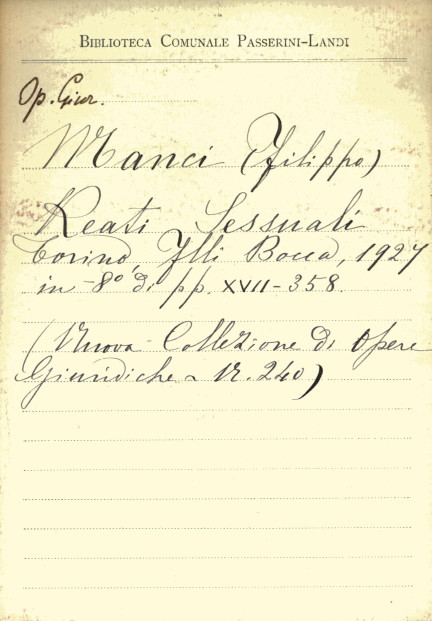 BIBLIOTECA COMUNALE PASSERINI-LANDI
Op. Giur.
Manci (Filippo)
Reati Sessuali
Torino Flli Bocca, 1927
in-8° di pp. XVII-358.
(Nuova Collezione di Opere
Giuridiche - N. 240)